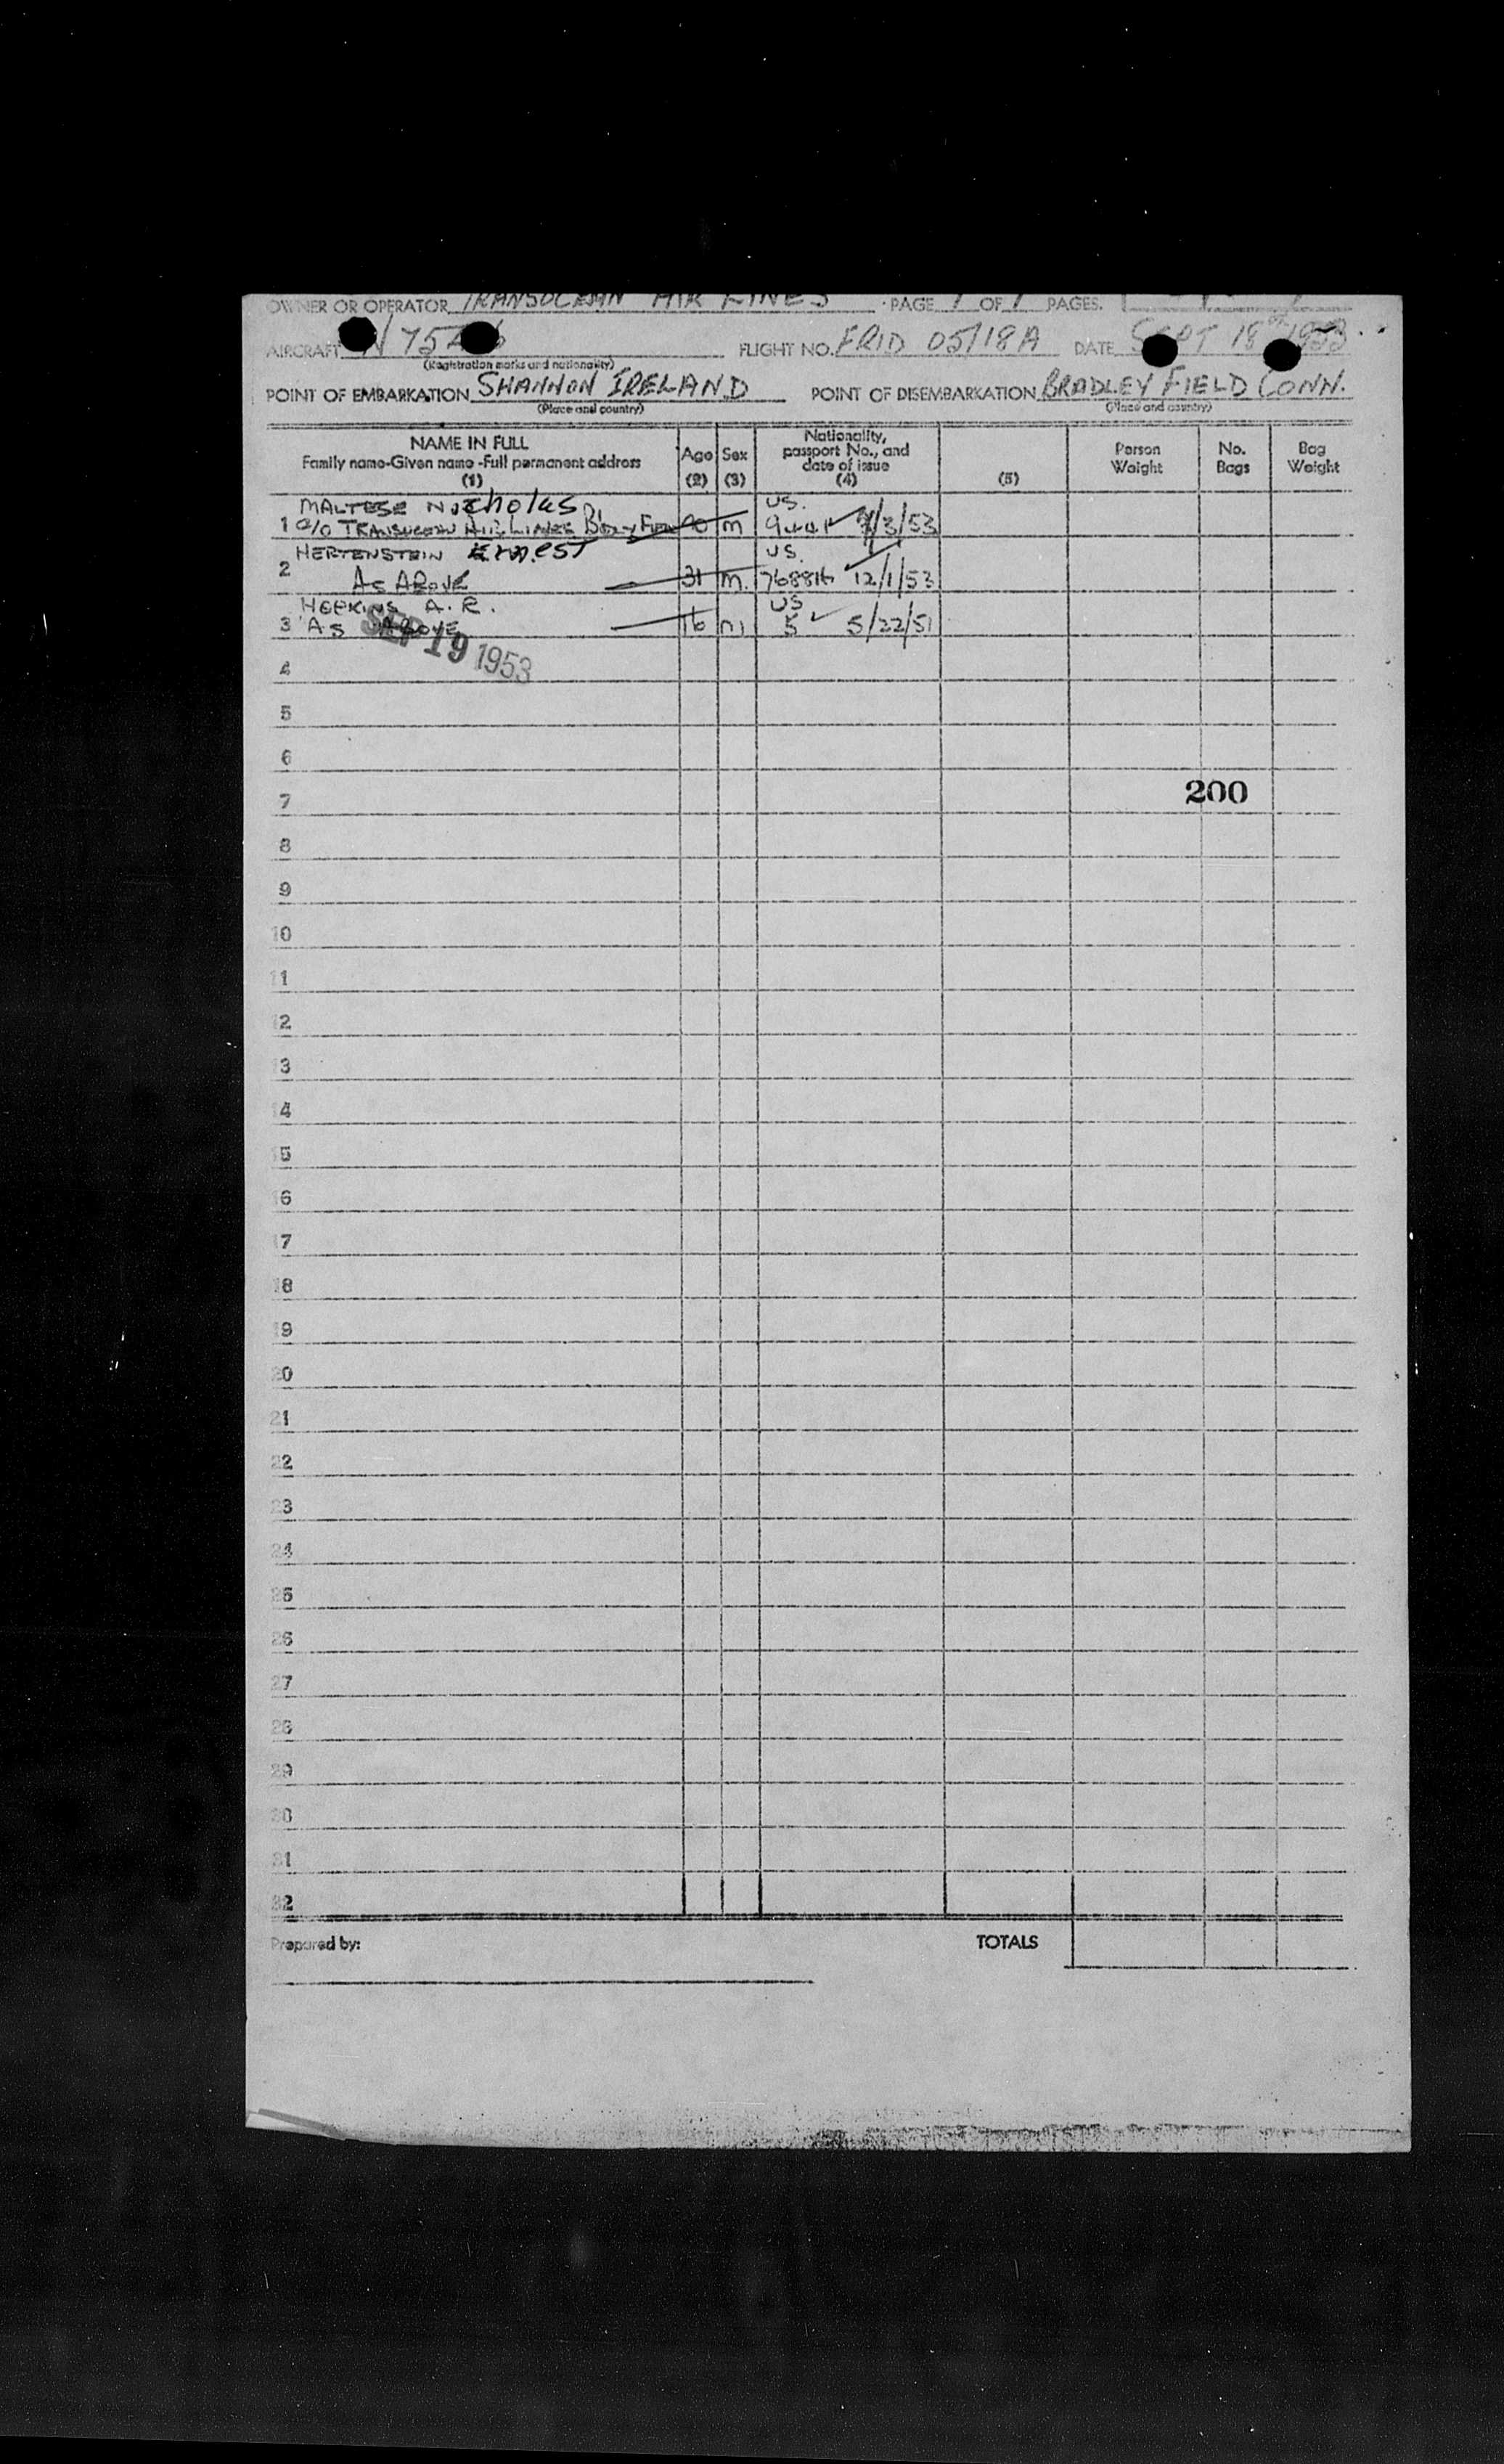 OWNER OR OPERATOR TRANSOCEAN AIR LINES PAGE 1 OF 1 PAGES.
AIRCRAFT N 75 FLIGHT NO. FRID 05/18A DATE SEPT 18 1953
(Registration marks and nationality)
POINT OF EMBARKATION SHANNON IRELAND POINT OF DISEMBARKATION BRADLEY FIELD CONN.
(Place and country) (Place and country)
NAME IN FULL Age Sex Nationality, Person No. Bag
Family name-Given name-Full permanent address passport No., and Weight Bags Weight
date of issue
(1) (2) (3) (4) (5)
MALTESE Nicholas US.
1 c/o TRANSOCEAN AIR LINES m 9441 /3/53
HERTENSTEIN Ernest US.
2 AS ABOVE 31 m. 12/1/53
A. R. US
3 AS ABOVE m 5 5/22/51
SEP 19 1953
4
5
6
7 200
8
9
10
11
12
13
14
15
16
17
18
19
20
21
22
23
24
25
26
27
28
29
30
31
32
Prepared by: TOTALS